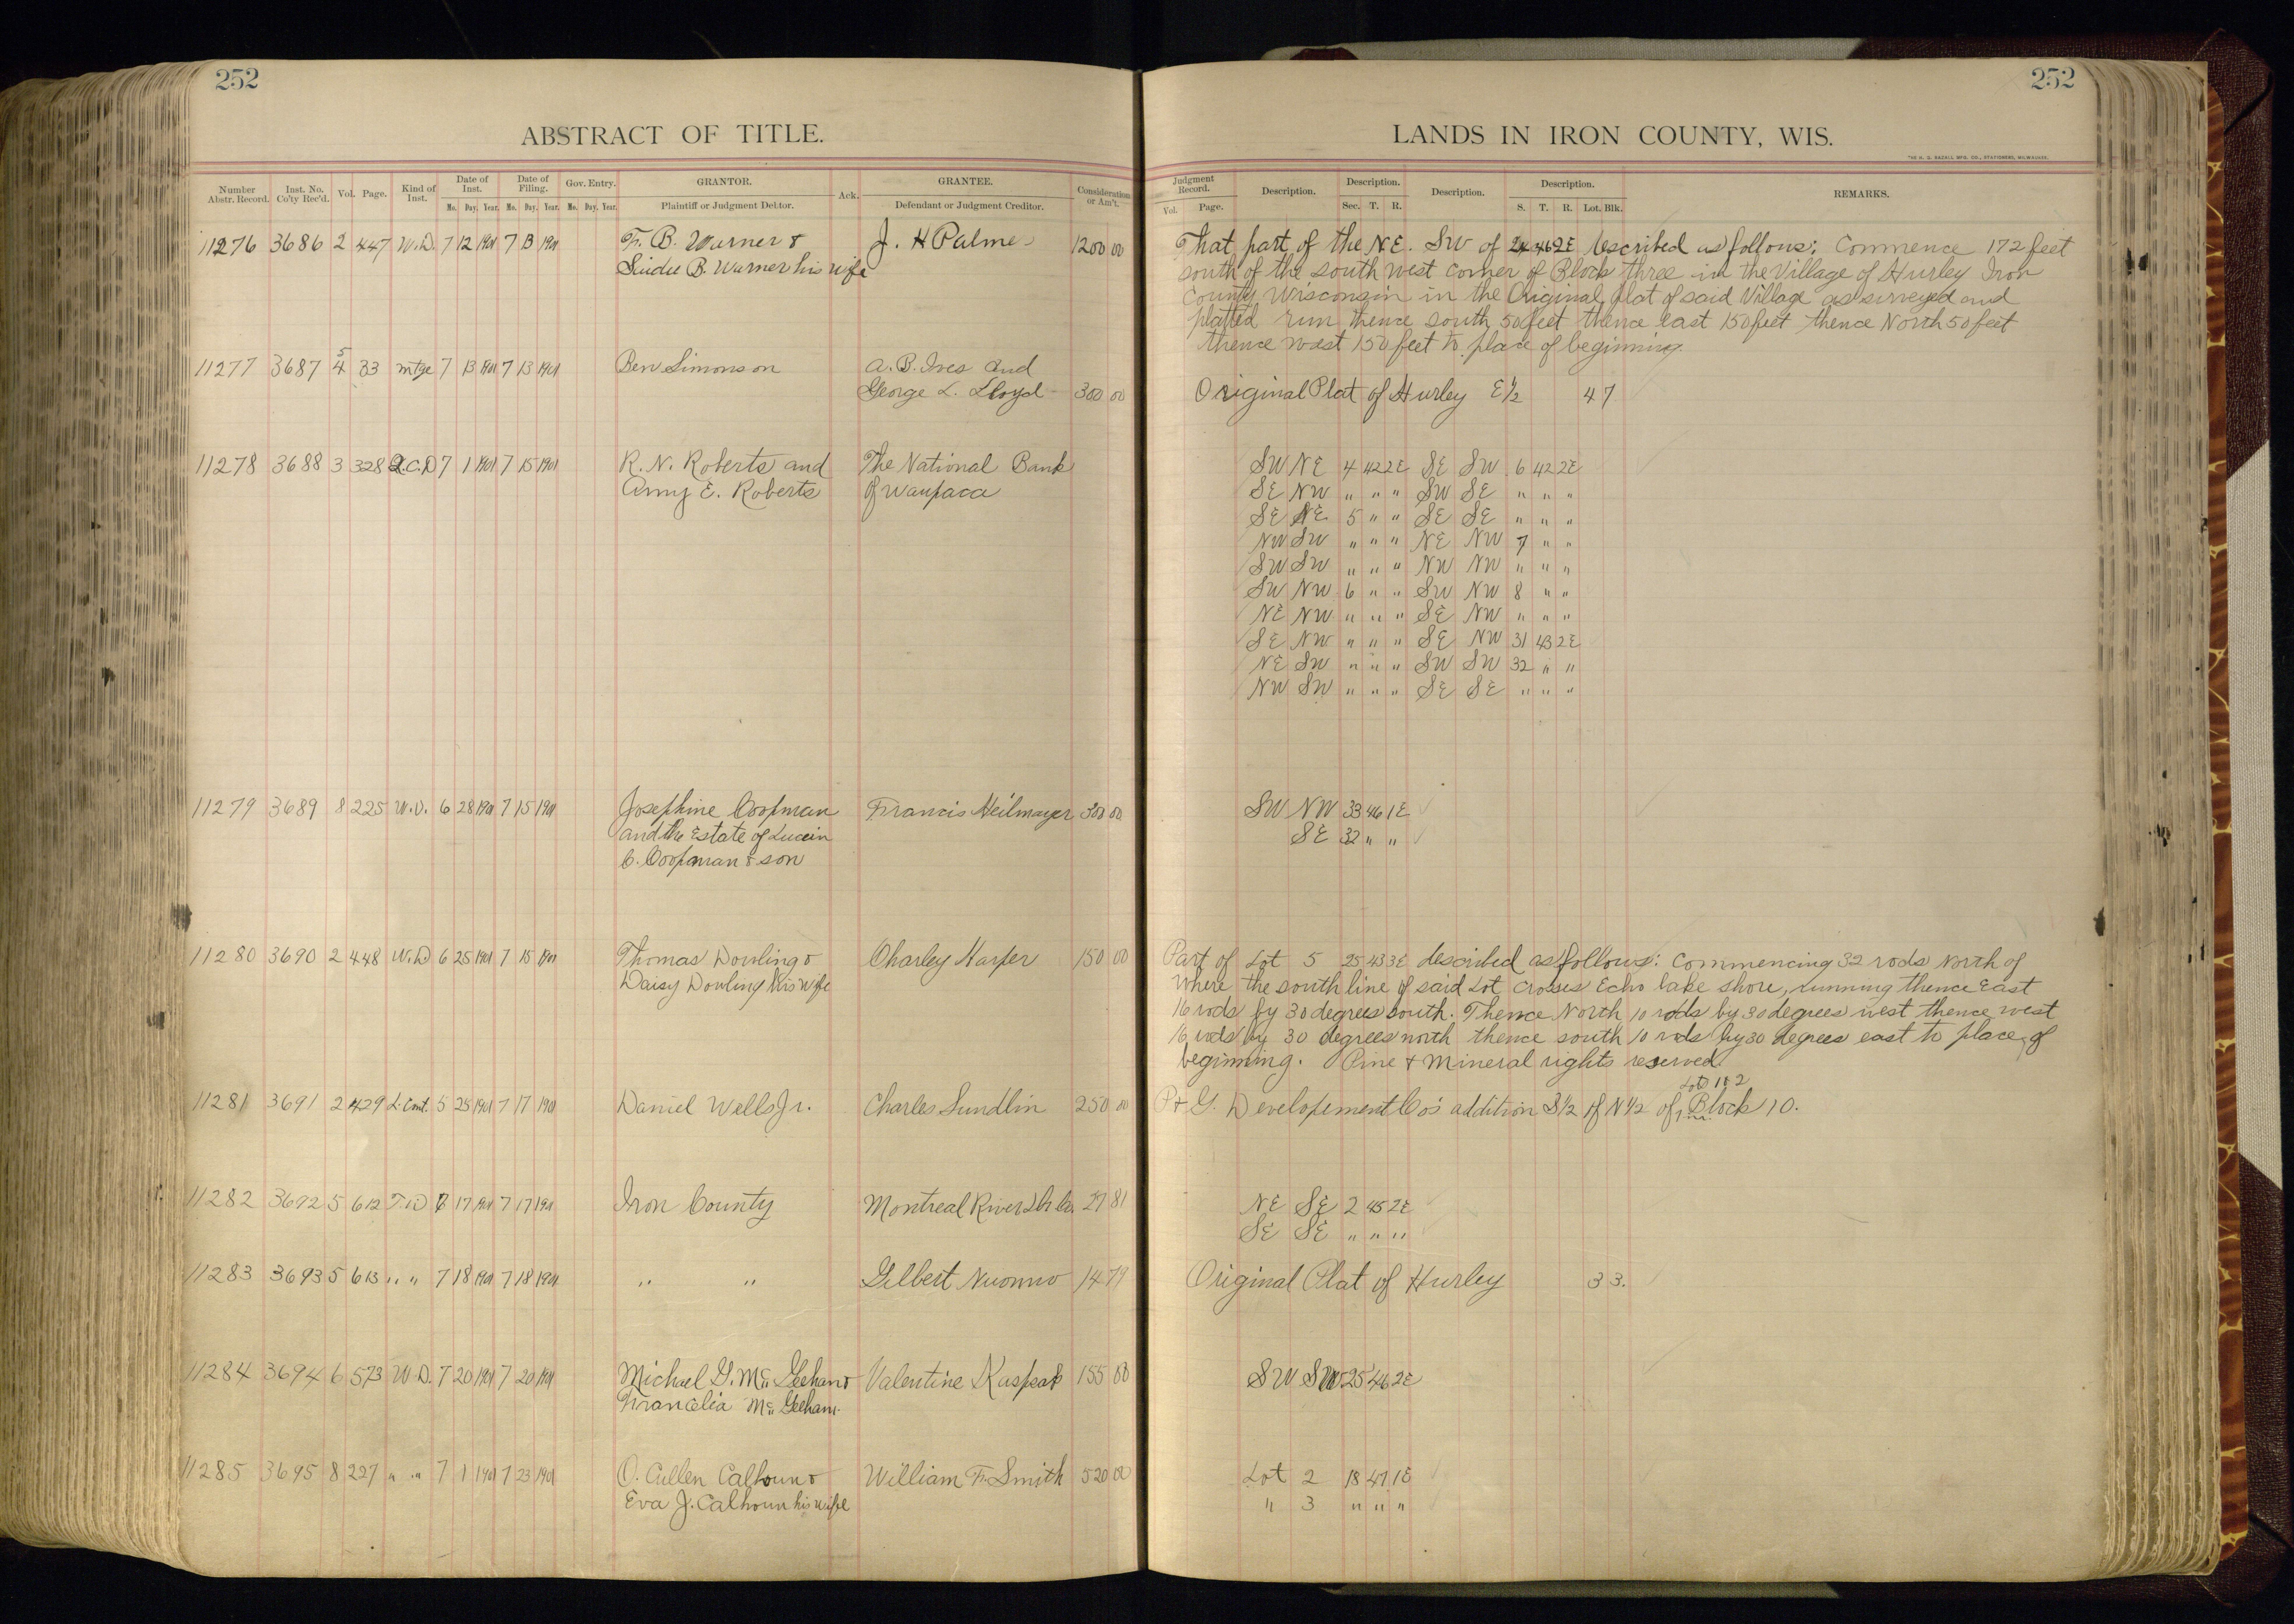 252
ABSTRACT OF TITLE.
Number Abstr. Record. Inst. No. Co'ty Rec'd. Vol. Page. Kind of Inst. Date of Inst. Mo. Day. Year. Date of Filing. Mo. Day. Year. Gov. Entry. Mo. Day. Year. GRANTOR. Plaintiff or Judgment Debtor. Ack. GRANTEE. Defendant or Judgment Creditor. Consideration or Am't.
11276 3686 2 447 W.D. 7 12 1901 7 13 1901 F. B. Warner & J. H Palmer 1200 00
B. Warner his wife
11277 3687 5 4 33 mtge 7 13 1901 7 13 1901 Ben Simonson A. B. Ives and
George L. Lloyd 300 00
11278 3688 3 328 Q.C.D 7 1 1901 7 15 1901 R. N. Roberts and The National Bank
Amy E. Roberts of Waupaca
11279 3689 8 225 W.D. 6 28 1901 7 15 1901 Josephine Coopman Francis Heilmayer 300 00
and the Estate of Lucein
C. Coopman & son
11280 3690 2 448 W.D 6 25 1901 7 15 1901 Thomas Dowling & Charley Harper 150 00
Daisy Dowling his wife
11281 3691 2 429 L. Cont. 5 25 1901 7 17 1901 Daniel Wells Jr. Charles Sundlin 250 00
11282 3692 5 612 T.D 7 17 1901 7 17 1901 Iron County Montreal River Lbr Co. 27 81
11283 3693 5 613 " " 7 18 1901 7 18 1901 " " Gilbert 14 79
11284 3694 6 573 W.D. 7 20 1901 7 20 1901 Michael G. Mc Geehan & Valentine Kaspeak 155 00
Francelia Mc Geehan.
11285 3695 8 227 " " 7 1 1901 7 23 1901 O. Cullen Calhoun & William F. Smith 520 00
Eva J. Calhoun his wife
252
LANDS IN IRON COUNTY, WIS.
THE H. G. RAZALL MFG. CO., STATIONERS, MILWAUKEE.
Judgment Record. Vol. Page. Description. Description. Sec. T. R. Description. Description. S. T. R. Lot. Blk. REMARKS.
That part of the N.E. SW of 24 46 2E described as follows: Commence 172 feet
south of the south west corner of Block three in the Village of Hurley Iron
County Wisconsin in the Original plat of said Village as surveyed and
platted run thence south 50 feet thence east 150 feet thence North 50 feet
thence west 150 feet to place of beginning.
Original Plat of Hurley E½ 4 7
SW NE 4 42 2E SE SW 6 42 2E
SE NW " " " SW SE " " "
SE NE 5 " " SE SE " " "
NW SW " " " NE NW 7 " "
SW SW " " " NW NW " " "
SW NW 6 " " SW NW 8 " "
NE NW " " " SE NW " " "
SE NW " " " SE NW 31 43 2E
NE SW " " " SW SW 32 " "
NW SW " " " SE SE " " "
SW NW 33 46 1E
SE 32 " "
Part of Lot 5 25 43 3E described as follows: Commencing 32 rods North of
where the south line of said Lot crosses Echo lake shore, running thence East
16 rods by 30 degrees south. Thence North 10 rods by 30 degrees west thence west
16 rods by 30 degrees north thence south 10 rods by 30 degrees east to place of
beginning. Pine & Mineral rights reserved.
Lots 1 & 2
P & G. Developement Co's addition S½ of N½ of in Block 10.
NE SE 2 45 2E
SE SE " " "
Original Plat of Hurley 3 3.
SW SW 25 46 2E
Lot 2 18 47 1E
" 3 " " "